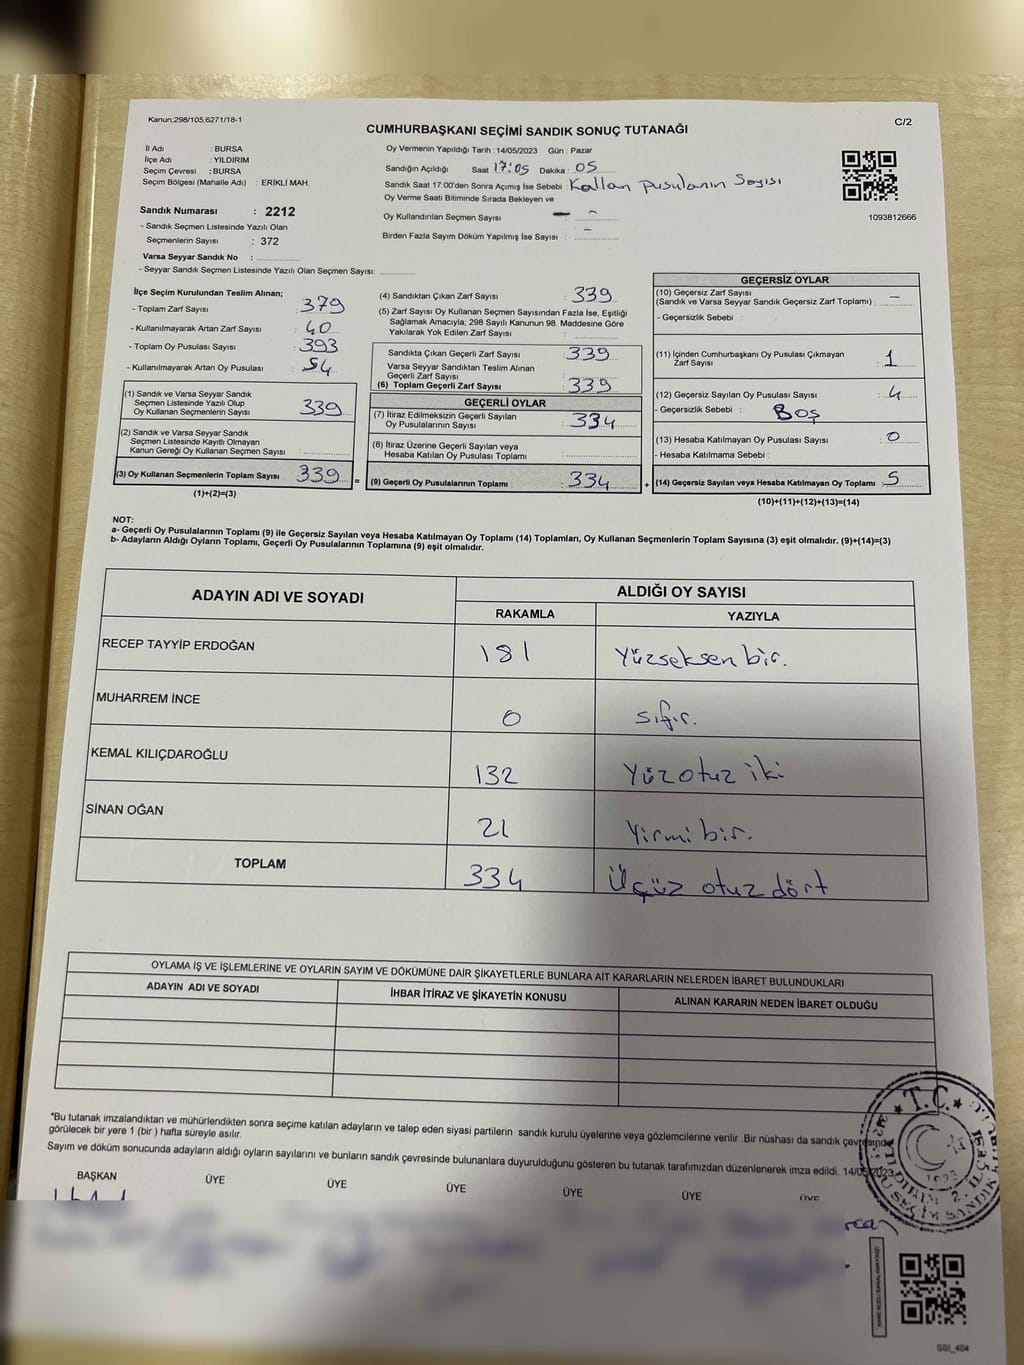 Kanun;298/105,6271/18-1
C/2
CUMHURBAŞKANI SEÇİMİ SANDIK SONUÇ TUTANAĞI
İl Adı : BURSA
İlçe Adı : YILDIRIM
Seçim Çevresi : BURSA
Seçim Bölgesi (Mahalle Adı) : ERİKLİ MAH.
Sandık Numarası : 2212
- Sandık Seçmen Listesinde Yazılı Olan
Seçmenlerin Sayısı : 372
Varsa Seyyar Sandık No :
- Seyyar Sandık Seçmen Listesinde Yazılı Olan Seçmen Sayısı:
Oy Vermenin Yapıldığı Tarih : 14/05/2023 Gün : Pazar
Sandığın Açıldığı Saat 17:05 Dakika : 05
Sandık Saat 17:00'den Sonra Açımış İse Sebebi : Kallan pusulanın Sayısı
Oy Verme Saati Bitiminde Sırada Bekleyen ve
Oy Kullandırılan Seçmen Sayısı : -
Birden Fazla Sayım Döküm Yapılmış İse Sayısı : -
1093812666
İlçe Seçim Kurulundan Teslim Alınan;
- Toplam Zarf Sayısı : 379
- Kullanılmayarak Artan Zarf Sayısı : 40
- Toplam Oy Pusulası Sayısı : 393
- Kullanılmayarak Artan Oy Pusulası : 54
(1) Sandık ve Varsa Seyyar Sandık
Seçmen Listesinde Yazılı Olup
Oy Kullanan Seçmenlerin Sayısı : 339
(2) Sandık ve Varsa Seyyar Sandık
Seçmen Listesinde Kayıtlı Olmayan
Kanun Gereği Oy Kullanan Seçmen Sayısı :
(3) Oy Kullanan Seçmenlerin Toplam Sayısı : 339 =
(1)+(2)=(3)
(4) Sandıktan Çıkan Zarf Sayısı : 339
(5) Zarf Sayısı Oy Kullanan Seçmen Sayısından Fazla İse, Eşitliği
Sağlamak Amacıyla, 298 Sayılı Kanunun 98. Maddesine Göre
Yakılarak Yok Edilen Zarf Sayısı :
Sandıkta Çıkan Geçerli Zarf Sayısı : 339
Varsa Seyyar Sandıktan Teslim Alınan
Geçerli Zarf Sayısı :
(6) Toplam Geçerli Zarf Sayısı : 339
GEÇERLİ OYLAR
(7) İtiraz Edilmeksizin Geçerli Sayılan
Oy Pusulalarının Sayısı : 334
(8) İtiraz Üzerine Geçerli Sayılan veya
Hesaba Katılan Oy Pusulası Toplamı :
(9) Geçerli Oy Pusulalarının Toplamı : 334 +
GEÇERSİZ OYLAR
(10) Geçersiz Zarf Sayısı
(Sandık ve Varsa Seyyar Sandık Geçersiz Zarf Toplamı) : -
- Geçersizlik Sebebi :
(11) İçinden Cumhurbaşkanı Oy Pusulası Çıkmayan
Zarf Sayısı : 1
(12) Geçersiz Sayılan Oy Pusulası Sayısı : 4
- Geçersizlik Sebebi : BOŞ
(13) Hesaba Katılmayan Oy Pusulası Sayısı : 0
- Hesaba Katılmama Sebebi :
(14) Geçersiz Sayılan veya Hesaba Katılmayan Oy Toplamı : 5
(10)+(11)+(12)+(13)=(14)
NOT:
a- Geçerli Oy Pusulalarının Toplamı (9) ile Geçersiz Sayılan veya Hesaba Katılmayan Oy Toplamı (14) Toplamları, Oy Kullanan Seçmenlerin Toplam Sayısına (3) eşit olmalıdır. (9)+(14)=(3)
b- Adayların Aldığı Oyların Toplamı, Geçerli Oy Pusulalarının Toplamına (9) eşit olmalıdır.
ADAYIN ADI VE SOYADI ALDIĞI OY SAYISI
RAKAMLA YAZIYLA
RECEP TAYYİP ERDOĞAN 181 Yüzseksen bir.
MUHARREM İNCE 0 sıfır.
KEMAL KILIÇDAROĞLU 132 Yüz otuz iki
SİNAN OĞAN 21 Yirmi bir.
TOPLAM 334 Üçüz otuz dört
OYLAMA İŞ VE İŞLEMLERİNE VE OYLARIN SAYIM VE DÖKÜMÜNE DAİR ŞİKAYETLERLE BUNLARA AİT KARARLARIN NELERDEN İBARET BULUNDUKLARI
ADAYIN ADI VE SOYADI İHBAR İTİRAZ VE ŞİKAYETİN KONUSU ALINAN KARARIN NEDEN İBARET OLDUĞU
*Bu tutanak imzalandıktan ve mühürlendikten sonra seçime katılan adayların ve talep eden siyasi partilerin sandık kurulu üyelerine veya gözlemcilerine verilir .Bir nüshası da sandık çevresinde
görülecek bir yere 1 (bir ) hafta süreyle asılır.
Sayım ve döküm sonucunda adayların aldığı oyların sayılarını ve bunların sandık çevresinde bulunanlara duyurulduğunu gösteren bu tutanak tarafımızdan düzenlenerek imza edildi. 14/05/2023
BAŞKAN ÜYE ÜYE ÜYE ÜYE ÜYE ÜYE
T.C.
1923
YILDIRIM 2. İLÇE
SEÇİM SANDIK